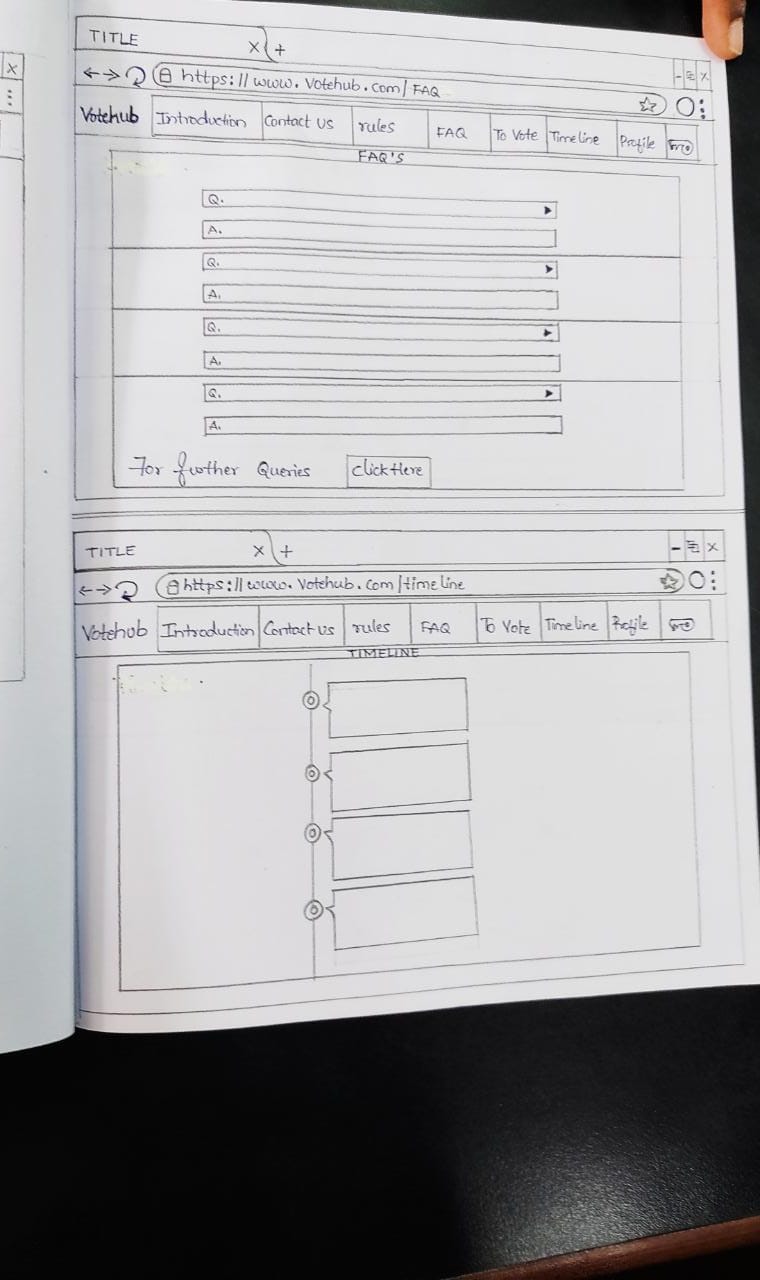 TITLE x +
https://www.Votehub.com/FAQ
Votehub Introduction Contact Us rules FAQ To Vote Time Line Profile
FAQ'S
Q.
A.
Q.
A.
Q.
A.
Q.
A.
For further Queries Click Here
TITLE x +
https://www.Votehub.com/time line
Votehub Introduction Contact us rules FAQ To Vote Time line Profile
TIMELINE